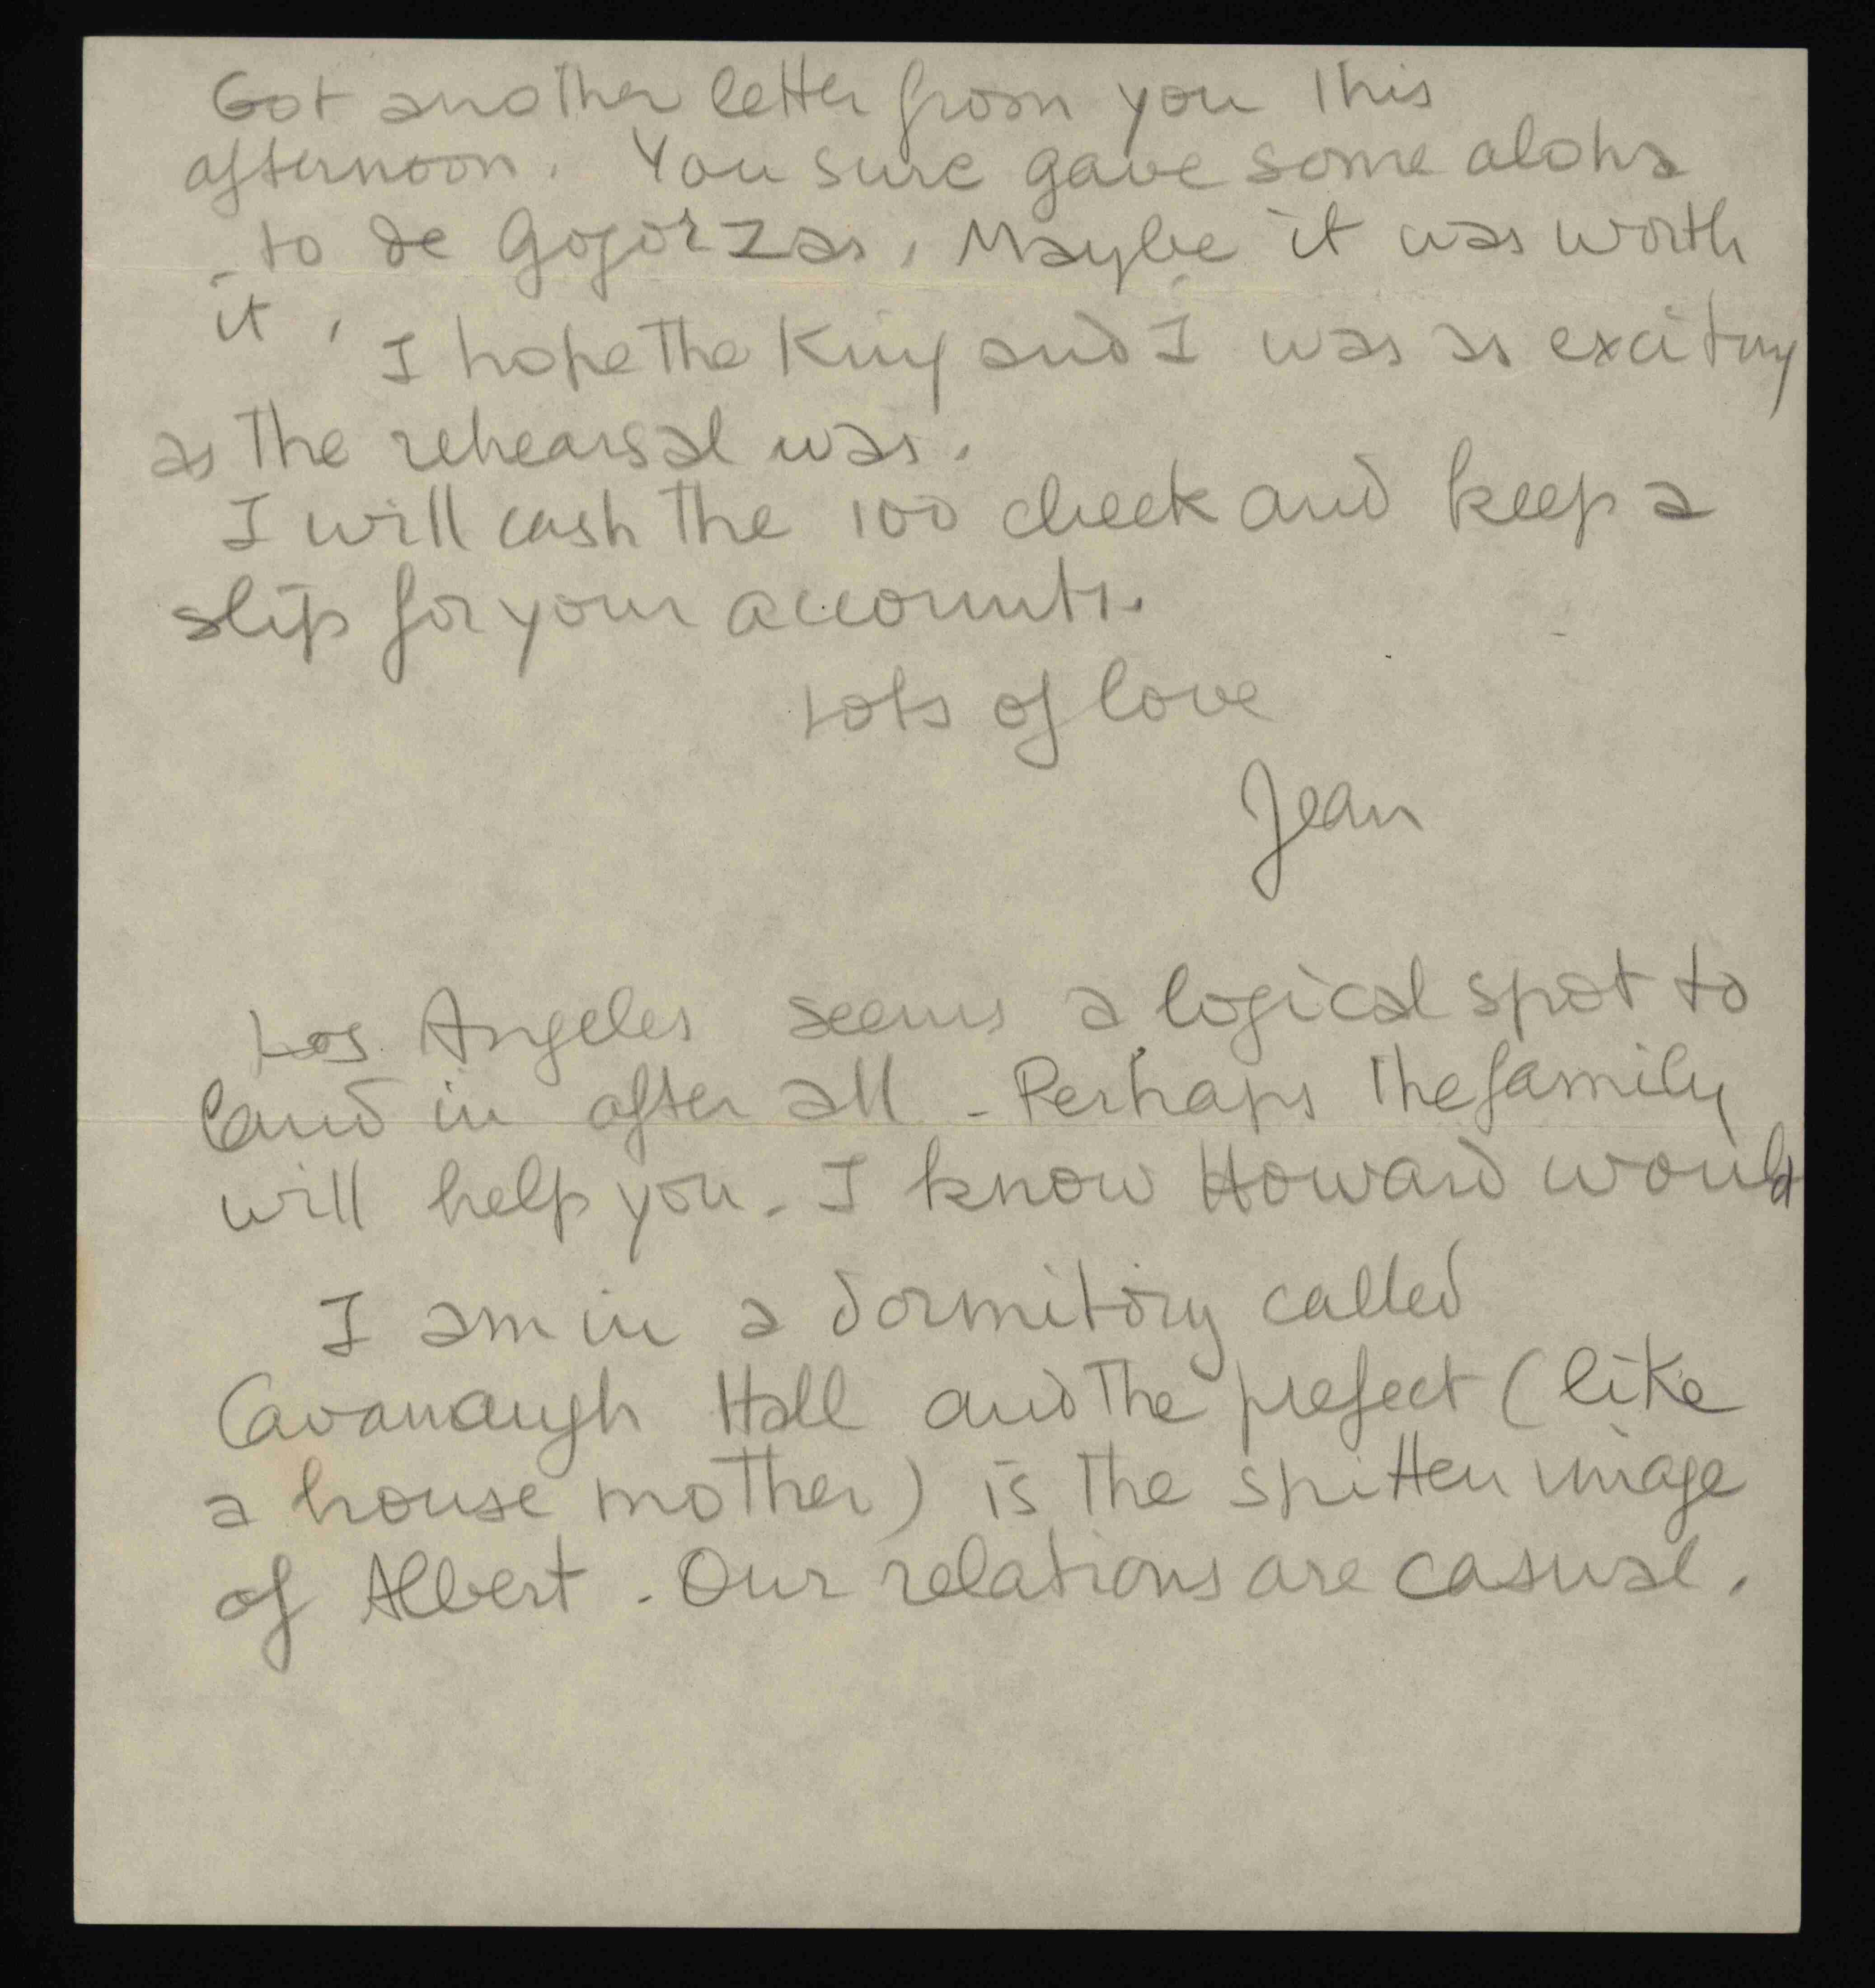 Got another letter from you this
afternoon. You sure gave some aloha
to de Gogorzas. Maybe it was worth
it. I hope the King and I was as exciting
as the rehearsal was.
I will cash the 100 check and keep a
slip for your accounts.
Lots of love
Jean
Los Angeles seems a logical spot to
land in after all - Perhaps the family
will help you. I know Howard would
I am in a dormitory called
Cavanaugh Hall and the prefect (like
a house mother) is the spitten image
of Albert. Our relations are casual.